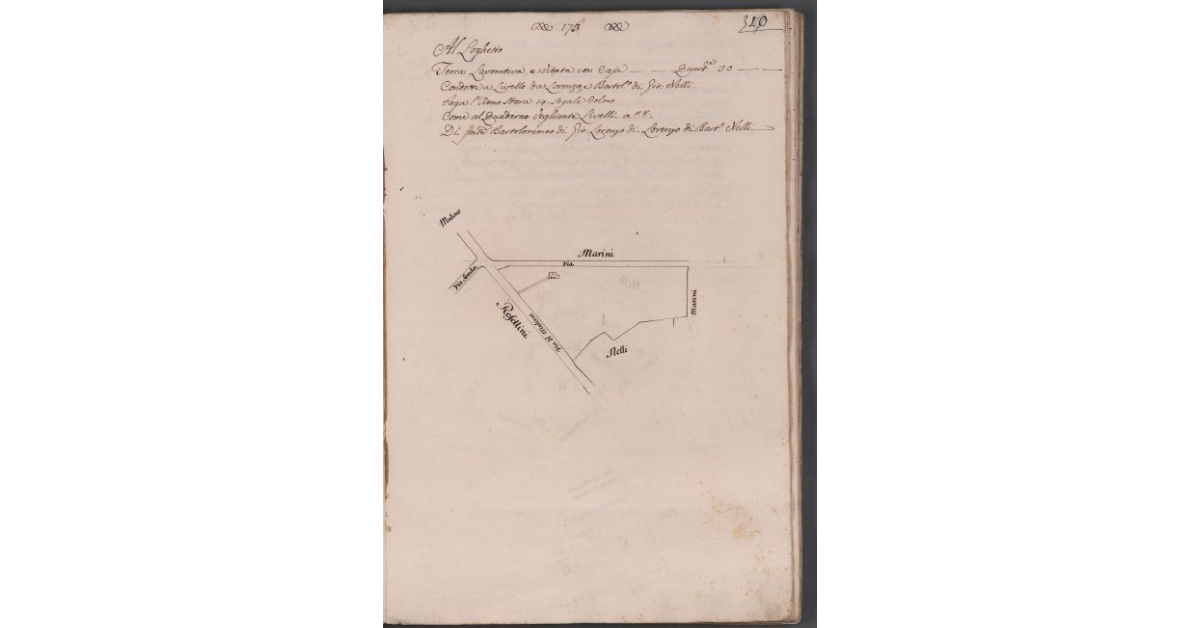 173
310
Al Loghetto
Terra Lavorativa, e Vitata con Casa Quart.e 30
Condotta a Livello da Lorenzo, e Bartol.o di Gio Nelli
Paga l'Anno Stara 14 Segale Colmo
Come al Quaderno Vegliante Livelli a
Di Bartolommeo di Gio Lorenzo di Lorenzo di Bart.o Nelli
Molino
Marini
Via
Via
Marini
Rosellini
Via di Modano
Nelli